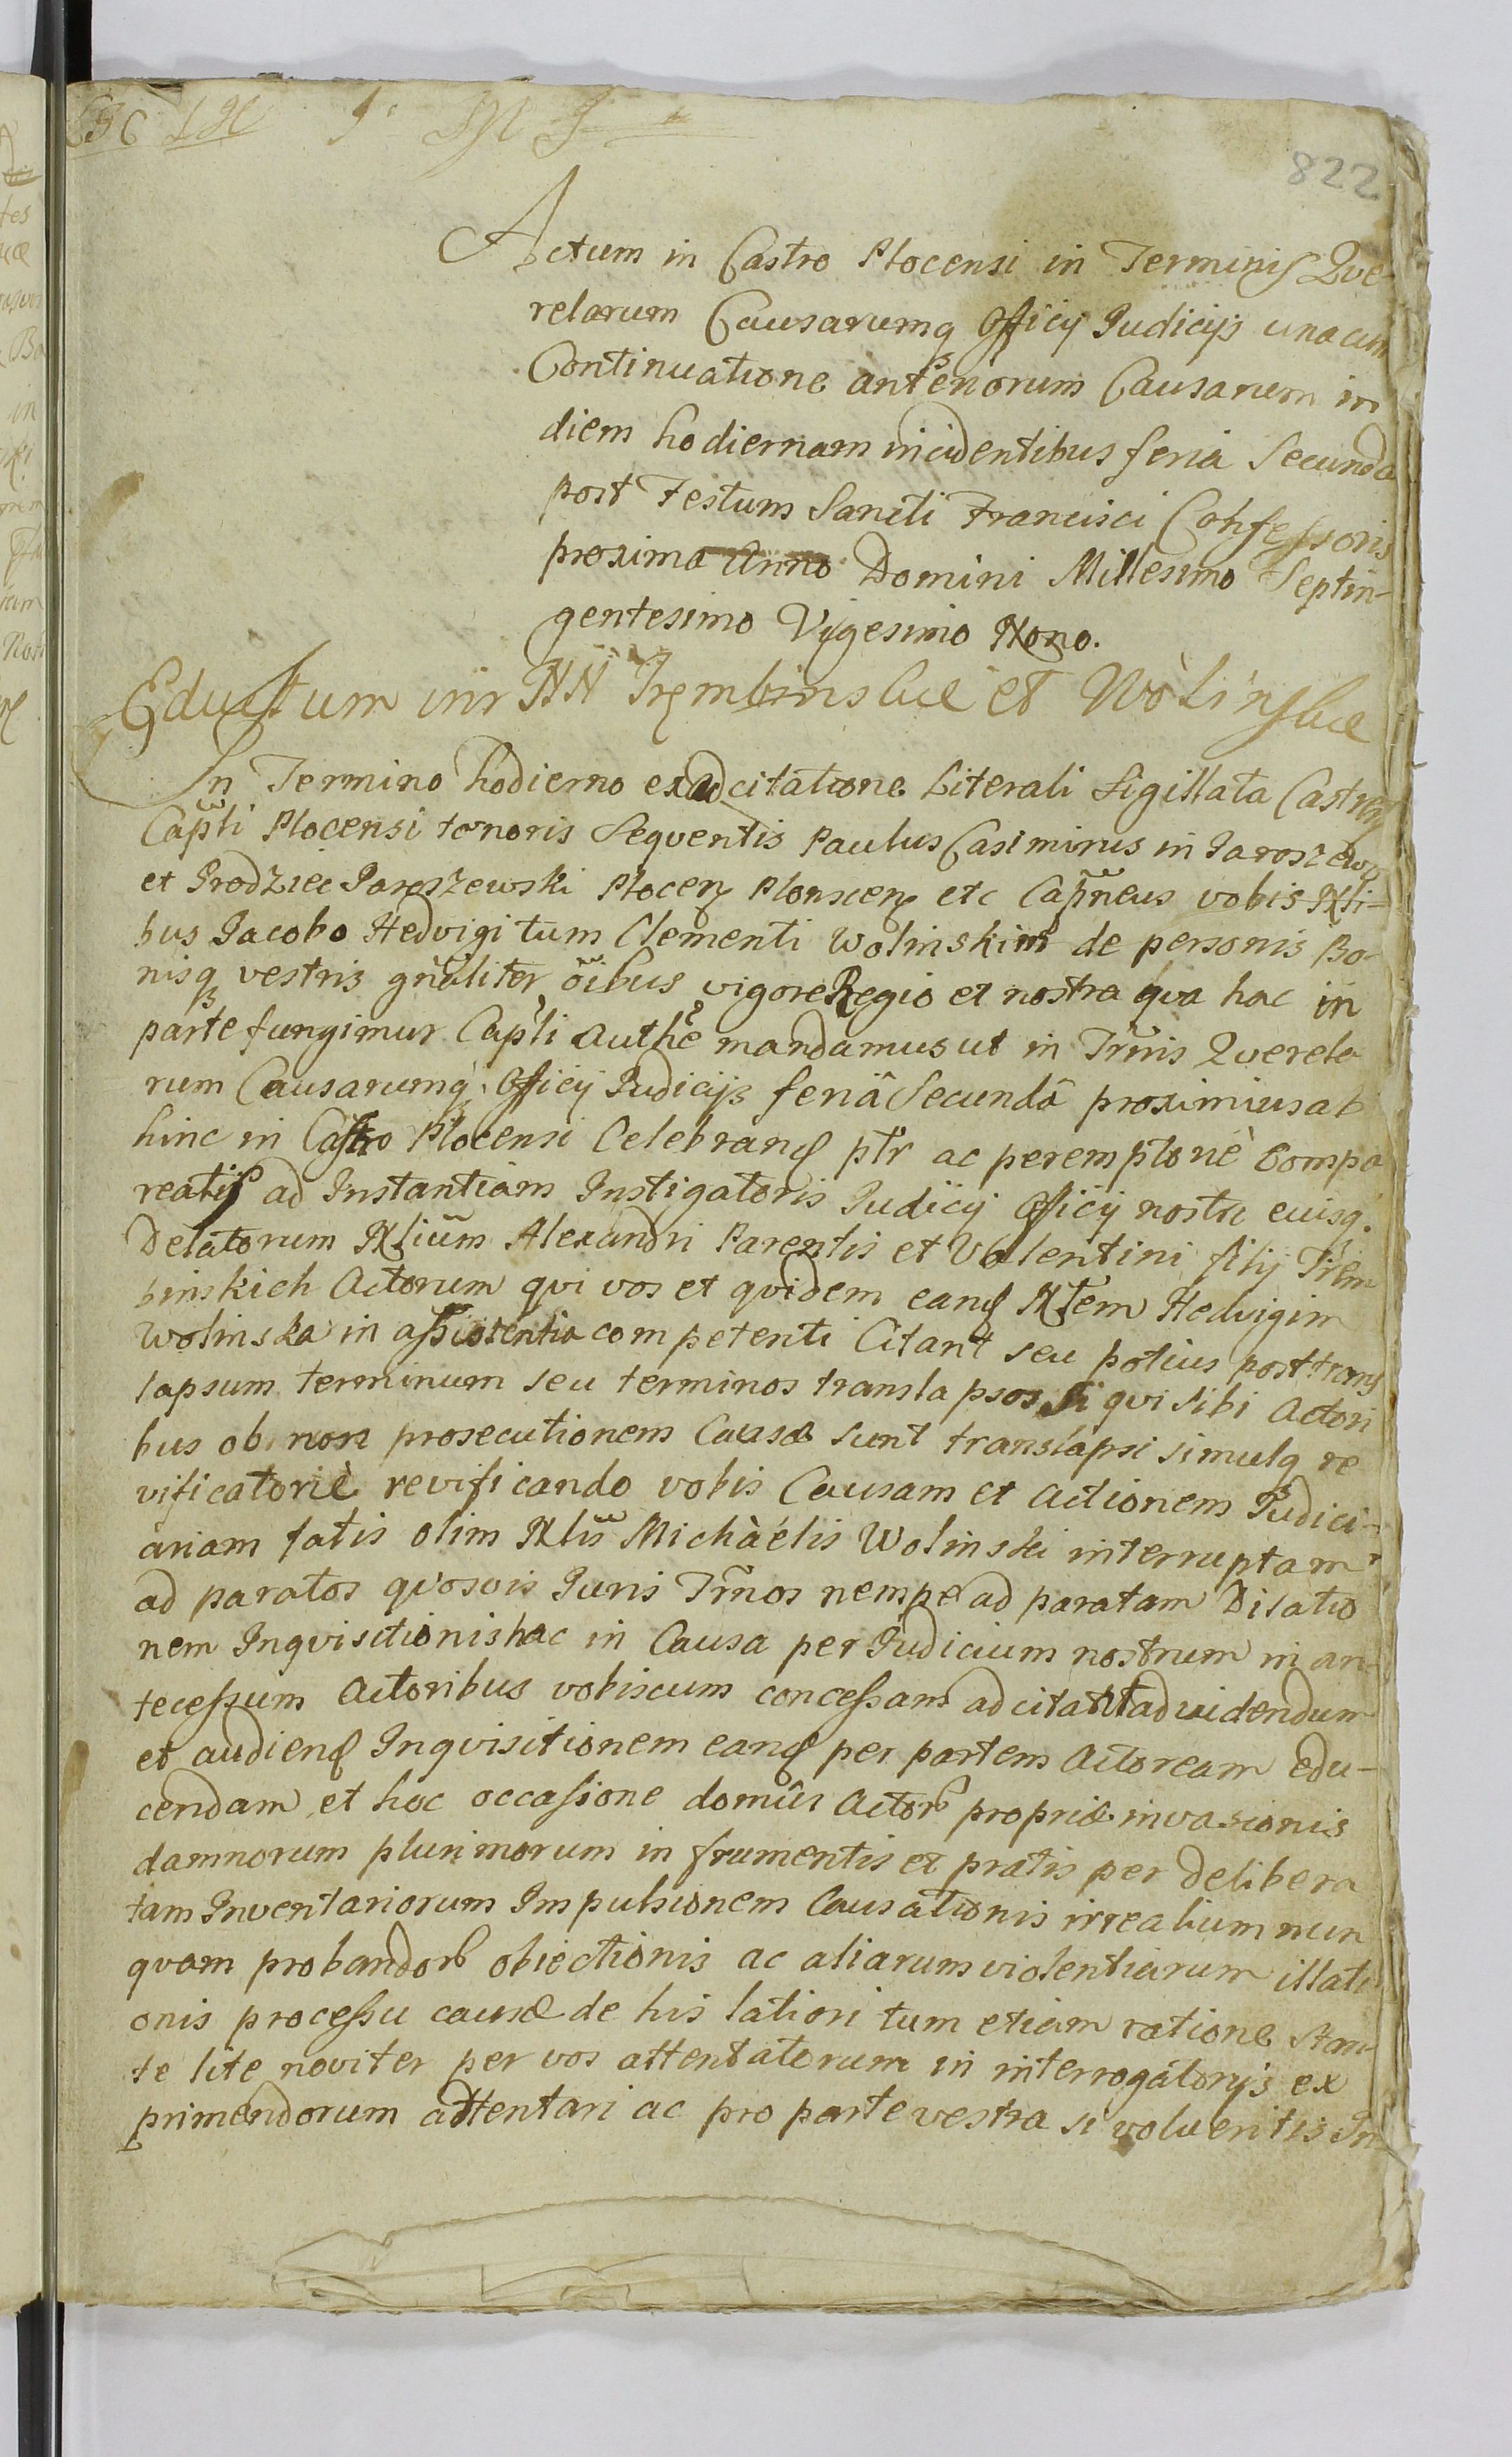 822
Actum in Castro Plocensi in Terminis Qve-
relarum Causarumq Officij Judicijs unacum
Continuatione anteriorum Causarum in
diem hodiernam incidentibus feria Secunda
post Festum Sancti Francisci Confessoris
proxima Anno Domini Millesimo Septin-
gentesimo Vigesimo Nono.
Eductum inr NN Trembinscie et Wolinscie
In Termino hodierno ex adcitatione Literali Sigillata Castren
Capli Plocensi tenoris Seqventis Paulus Casimirus in Jaroszewo
et Prodziec Jaroszewski Plocen Plonscen etc Capneus vobis Nli-
bus Jacobo Hedvigi tum Clementi Wolinskim de personis Bo-
nisq vestris gnaliter oibus vigore Regio et nostra qva hac in
parte fungimur Capli Authe mandamus ut in Trmis Qverela
rum Causarumq Officij Judicijs feriâ Secundâ proximius ab
hinc in Castro Plocensi Celebran ptr ac peremptoriè Compa
reatis ad Instantiam Instigatoris Judicij Officij nostri eiusq.
Delatorum Nlium Alexandri Parentis et Valentini filij Trem
binskich Actorum qvi vos et qvidem eand Nlem Hedvigim
Wolinska in assistentia competenti Citant seu potius post trans
lapsum terminum seu terminos translapsos si qvi sibi Actori
bus ob non prosecutionem Causæ sunt translapsi simulq re
vificatoriè revificando vobis Causam et Actionem Judici-
ariam fatis olim Nlis Michàélis Wolinski interruptam
ad paratos qvosvis Juris Trnos nempe ad paratam Dilatio
nem Inqvisitionis hac in Causa per Judicium nostrum in an-
tecessum Actoribus vobiscum concessam adcitant ad videndum
et audiend Inqvisitionem eand per partem Actoream edu-
cendam et hoc occasione domûs Actor propriæ invasionis
damnorum plurimorum in frumentis et pratis per delibera
tam Inventariorum Impulsionem Causationis irrealium nun
qvam probandor obiectionis ac aliarum violentiarum illati
onis processu causæ de his latiori tum etiam ratione Stan
te lite noviter per vos attentatorum in interrogatorijs ex
primendorum attentari ac pro parte vestra si volueritis In-